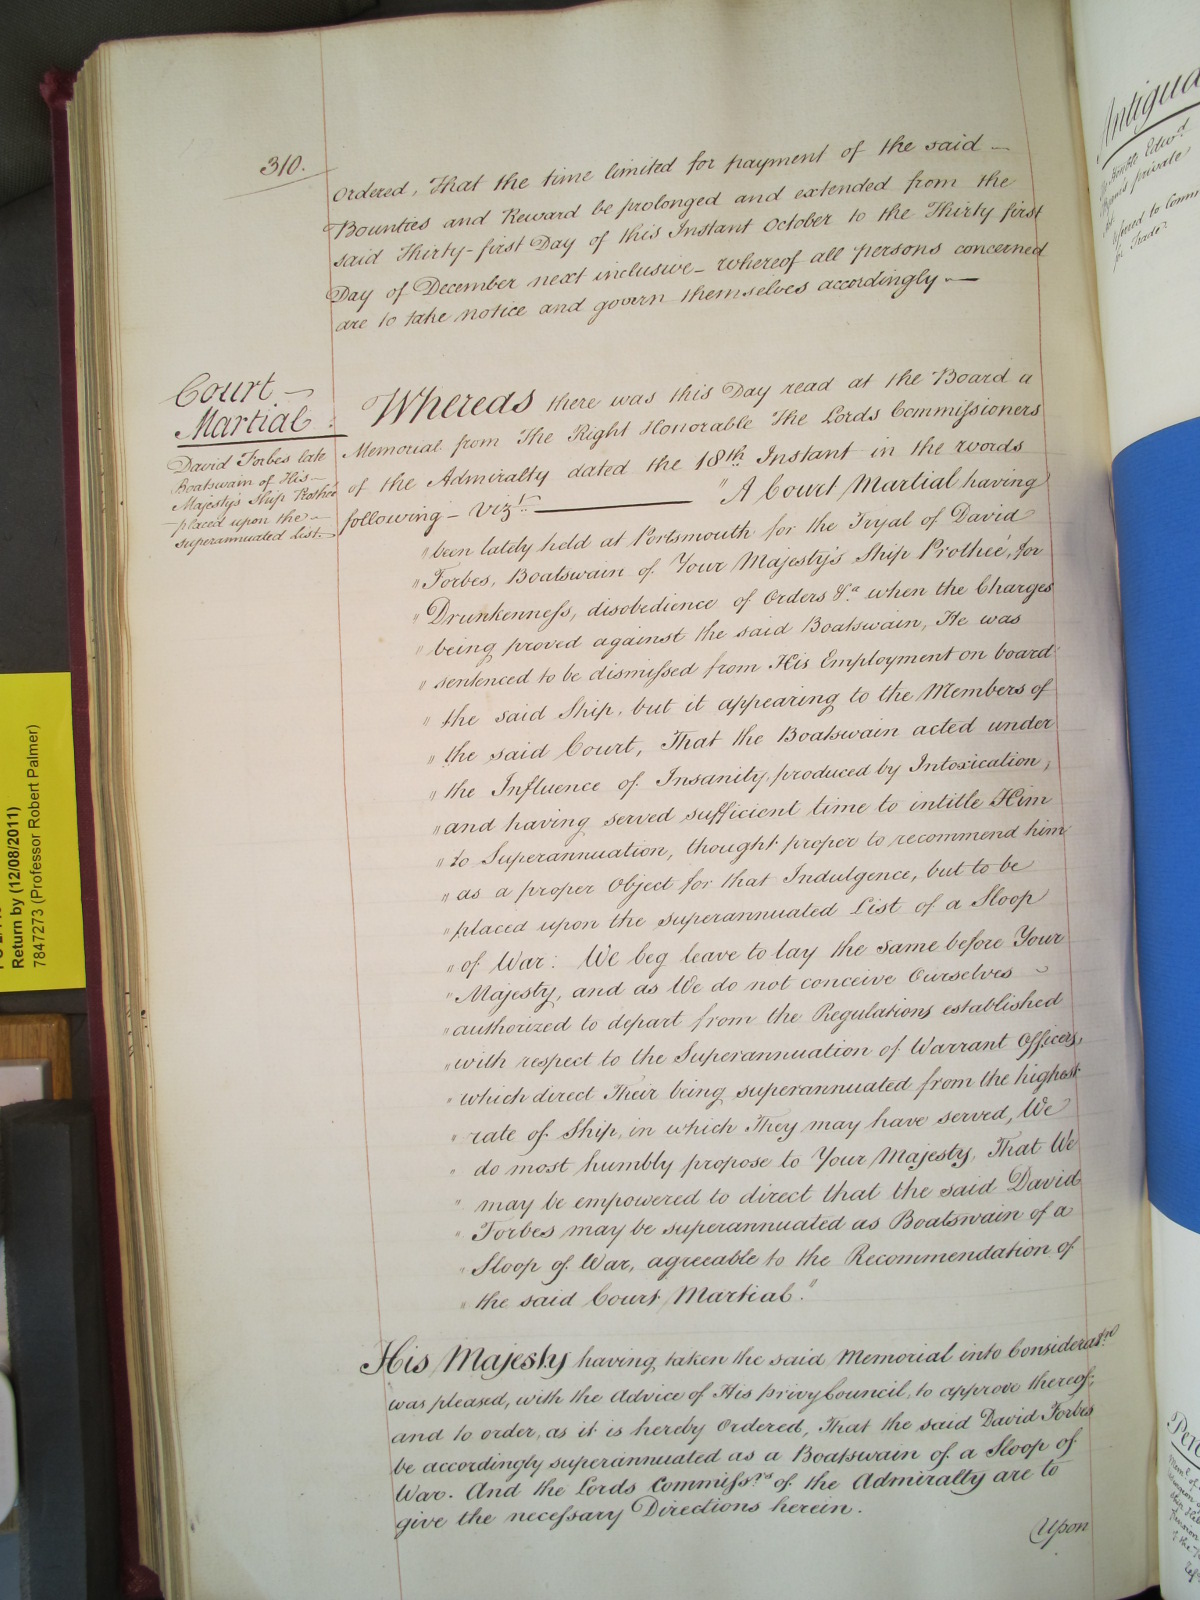 310.
Ordered, That the time limited for payment of the said —
Bounties and Reward be prolonged and extended from the
said Thirty-first Day of this Instant October to the Thirty first
Day of December next inclusive — whereof all persons concerned
are to take notice and govern themselves accordingly —
Court —
Martial :
David Forbes late
Boatswain of His —
Majesty's Ship Prothée
placed upon the —
superannuated List. —
Whereas there was this Day read at the Board a
Memorial from The Right Honorable The Lords Commissioners
of the Admiralty dated the 18th. Instant in the words
following — Vizt. ——— "A Court Martial having
" been lately held at Portsmouth for the Tryal of David
" Forbes, Boatswain of Your Majesty's Ship Protheé, for
" Drunkenness, disobedience of Orders &a. when the Charges
" being proved against the said Boatswain, He was
" sentenced to be dismissed from His Employment on board
" the said Ship, but it appearing to the Members of
" the said Court, That the Boatswain acted under
" the Influence of Insanity, produced by Intoxication,
" and having served sufficient time to intitle Him
" to Superannuation, thought proper to recommend him
" as a proper Object for that Indulgence, but to be
" placed upon the superannuated List of a Sloop
" of War: We beg leave to lay the same before Your
" Majesty, and as We do not conceive Ourselves
" authorized to depart from the Regulations established
" with respect to the Superannuation of Warrant Officers,
" which direct Their being superannuated from the highest
" rate of Ship, in which They may have served, We
" do most humbly propose to Your Majesty, That We
" may be empowered to direct that the said David
" Forbes may be superannuated as Boatswain of a
" Sloop of War, agreeable to the Recommendation of
" the said Court Martial."
His Majesty having taken the said Memorial into Considerat.on
was pleased, with the Advice of His Privy Council, to approve thereof,
and to order, as it is hereby Ordered, That the said David Forbes
be accordingly superannuated as a Boatswain of a Sloop of
War. And the Lords Commissrs. of the Admiralty are to
give the necessary Directions herein.
Upon
Return by (12/08/2011)
7847273 (Professor Robert Palmer)
Antigua
private